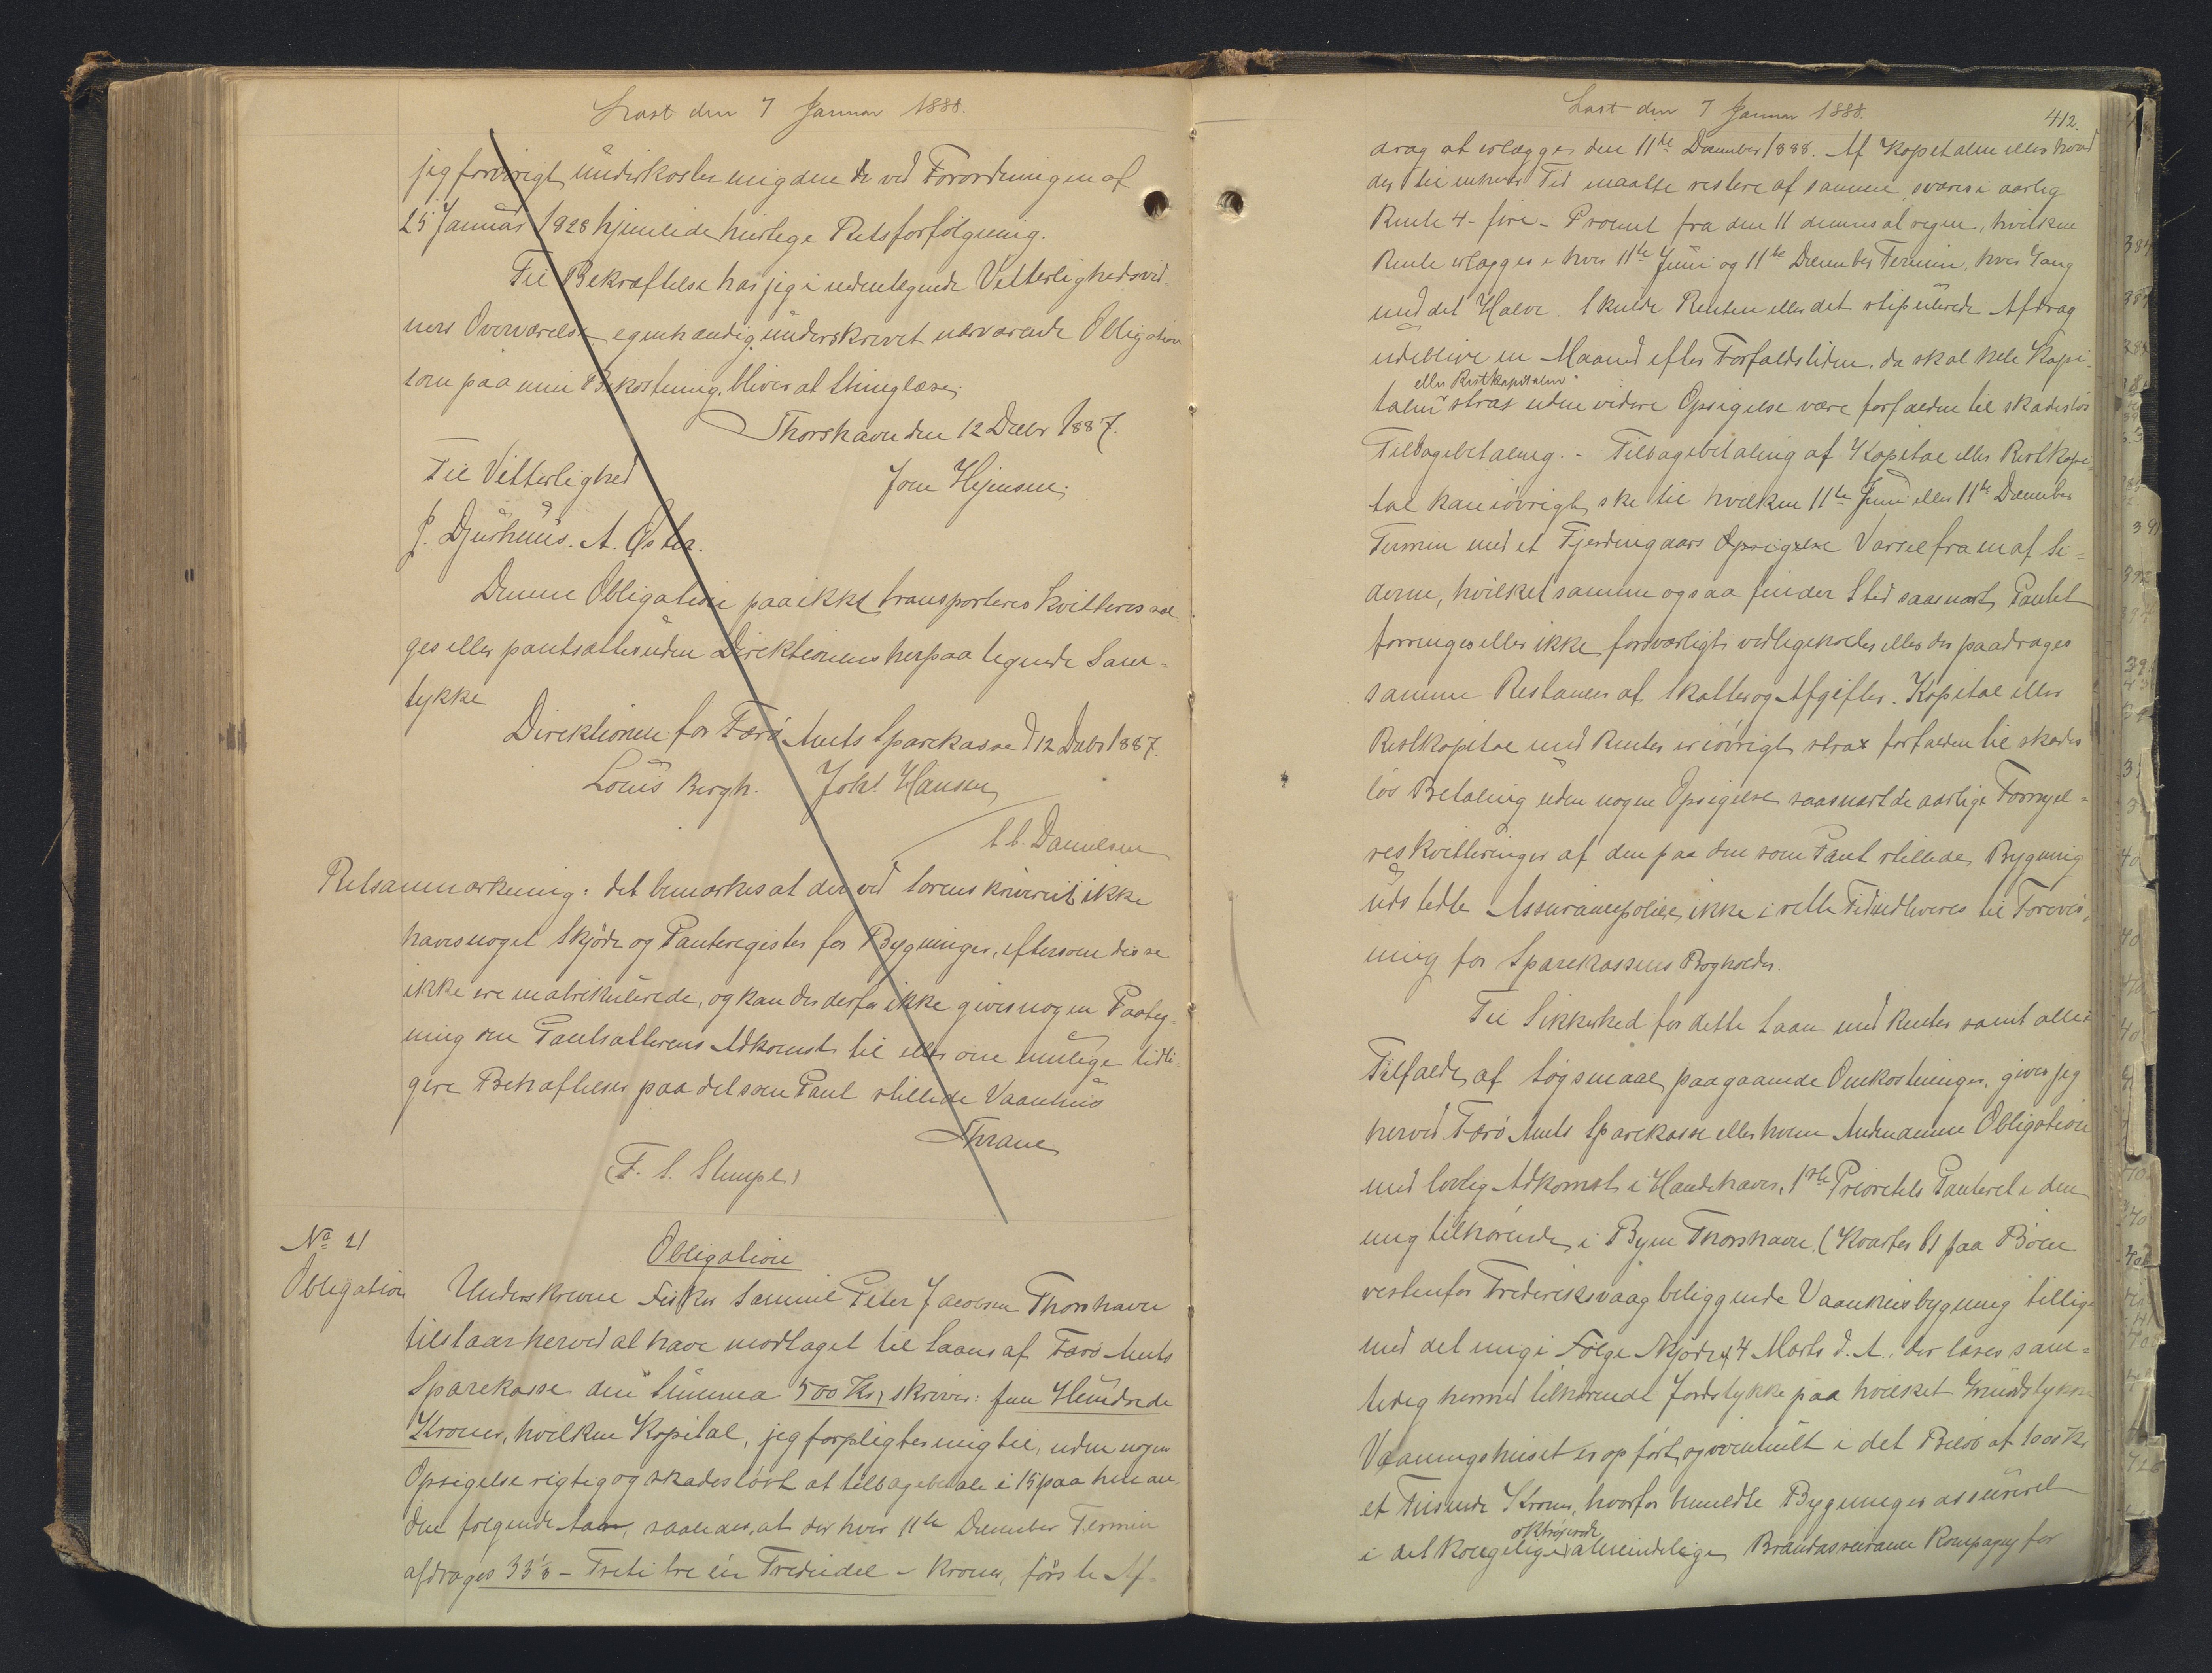 Læst den 7 Januar 1888.
jeg forøvrigt underkaster mig den de ved Forordningen af
25 Januar 1828 hjemlede hurtige Retsforfølgning.
Til Bekræftelse har jeg i nedentegnede Vitterlighedsvid-
ners Overværelse egenhændig underskrevet nærværende Obligation
som paa min Bekostning bliver at thinglæse.
Thorshavn den 12 Decbr 1887.
Til Vitterlighed
Joen Hejnsen.
J. Djurhuus. A. Öster.
Denne Obligation paa ikke transporteres kvitteres sæl
ges eller pantsættes uden Direktionens herpaa tegnede Sam-
tykke
Direktionen for Færø Amts Sparekasse d 12 Decbr 1887.
Louis Bergh. Johs Hansen
C. C. Danielsen
Retsanmærkning: Det bemærkes at der ved Sorenskriveriet ikke
haves noget Skjøde og Panteregister for Bygninger, eftersom disse
ikke ere matrikulerede, og kan der derfor ikke gives nogen Paateg-
ning om Pantsætterens Adkomst til eller om mulige tidli-
gere Behæftelser paa det som Pant stillede Vaanhus
Thrane
(F. S. Stempel)
No 21
Obligation
Obligation
Underskrevne Fisker Samuel Peter Jacobsen Thorshavn
tilstaar herved at have modtaget til Laans af Færø Amts
Sparekasse den Summa 500 Kr, skriver: fem Hundrede
Kroner, hvilken Kapital, jeg forpligter mig til, uden nogen
Opsigelse rigtig og skadesløst at tilbagebetale i 15 paa hinan-
den følgende Aar, saaledes, at der hver 11te December Termin
afdrages 33⅓ - Treti tre en Trediedel - Kroner, første Af-
Læst den 7 Januar 1888.
412.
drag at erlægges den 11te December 1888. Af Kapitalen eller hvad
der til enhver Tid maatte restere af samme svares i aarlig
Rente 4 - fire - Procent fra den 11 dennes at regne, hvilken
Rente erlægges i hver 11te Juni og 11te December Termin, hver Gang
med det Halve. Skulde Renten eller det stipulerede Afdrag
udeblive en Maaned efter Forfaldstiden, da skal hele Kapi-
eller Restkapitalen
talen strax uden videre Opsigelse være forfalden til skadesløs
Tilbagebetaling. - Tilbagebetaling af Kapital eller Restkapi-
tal kan iøvrigt ske til hvilken 11te Juni eller 11te December
Termin med et Fjerdingaars Opsigelse Varsel fra en af Si-
derne, hvilket samme ogsaa finder Sted saasnart Pantet
forringes eller ikke forsvarligt vedligeholdes eller der paadrages
samme Restancer af Skatter og Afgifter. Kapital eller
Restkapital med Renter er iøvrigt strax forfalden til skades
løs Betaling uden nogen Opsigelse saasnart de aarlige Fornyel-
ses kvitteringer af den paa den som Pant stillede Bygning
udstedte Assurancepolice ikke i rette Tid indleveres til Forevis-
ning for Sparekassens Bogholder.
Til Sikkerhed for dette Laan med Renter samt alle i
Tilfælde af Søgsmaal paagaaende Omkostninger, giver jeg
herved Færø Amts Sparekasse eller hvem Anden denne Obligation
med lovlig Adkomst i Hænde haver, 1ste Prioritets Panteret i den
mig tilhørende i Byen Thorshavn (Kvarter C) paa Bøen
vestenfor Frederiksvaag beliggende Vaanhusbygning tillige
med det mig i Følge Skjøde af 4 Marts d. A. der læses sam-
tidig hermed tilhørende Jordstykke paa hvilket Grundstykke
Vaaningshuset er opført, og eventuelt i det Beløb af 1000 Kr
et Tusinde Kroner, hvorfor bemeldte Bygninger assureret
oktrojerede
i det kongelige almindelige Brandassurance Kompagny for